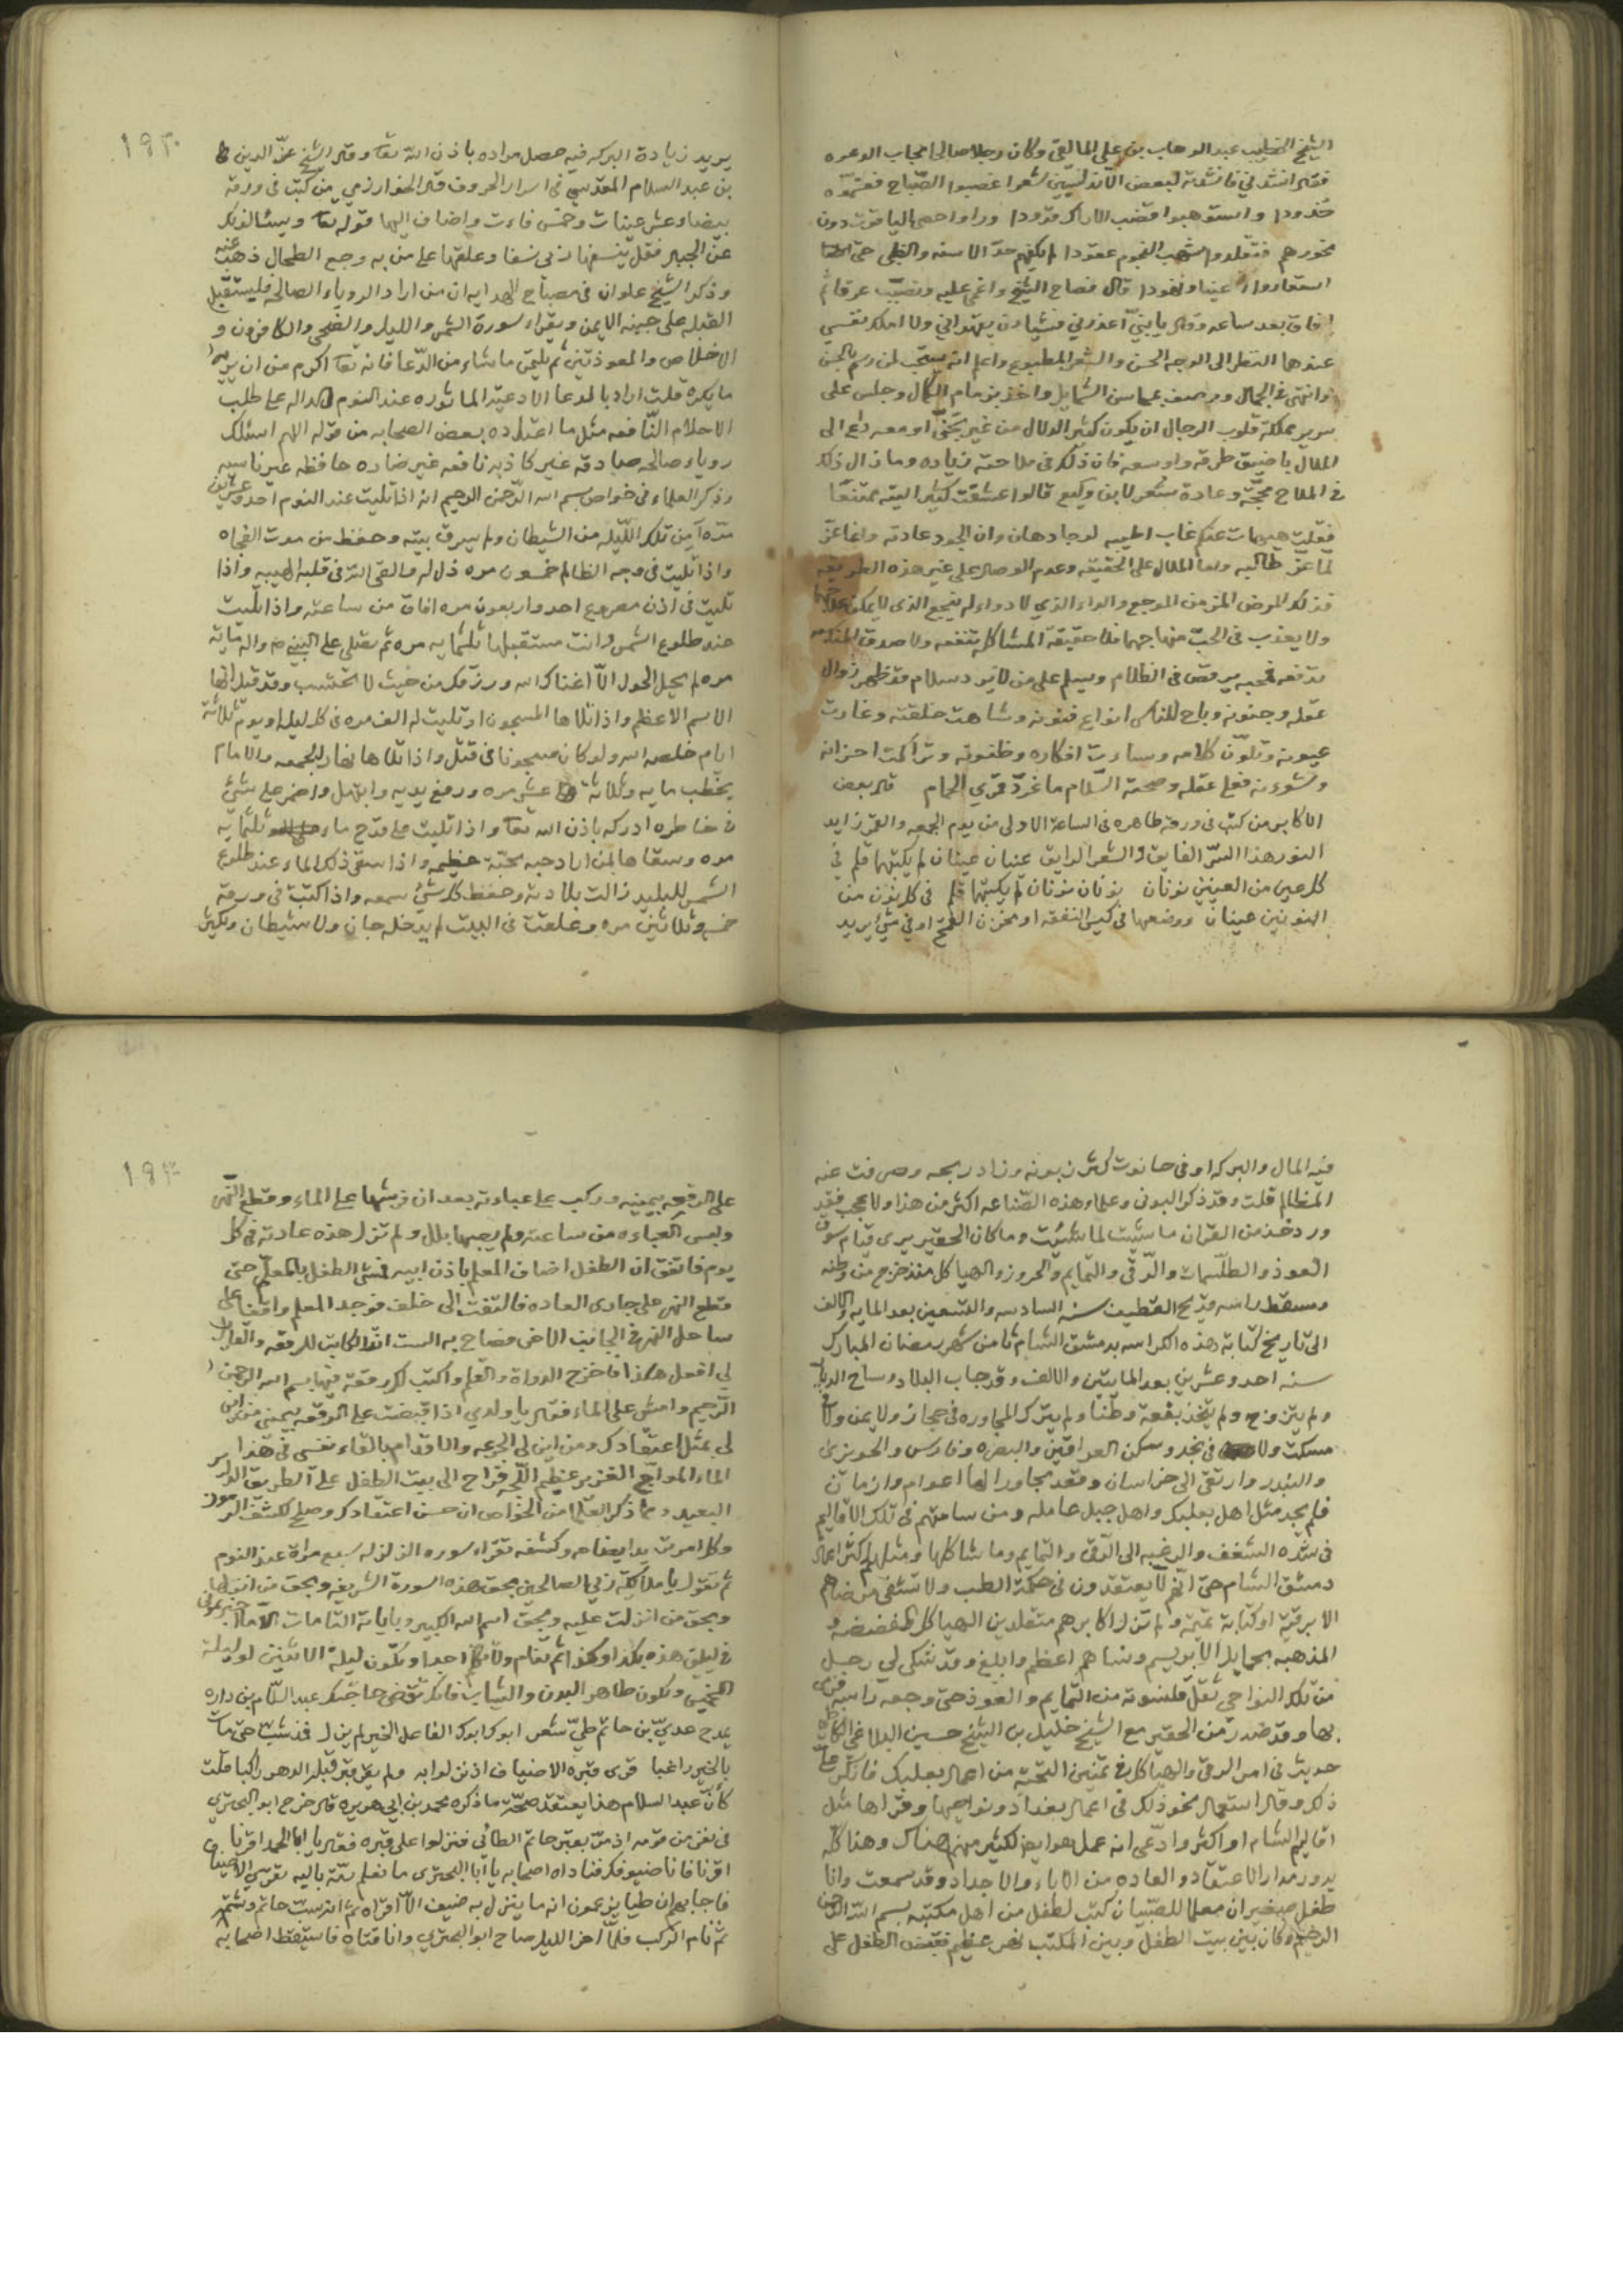 الشيخ الخطيب عبد الوهاب بن علي المالقي وكان رجلا صالحا مجاب الدعوه
فقال انشدني فانشدته لبعض الاندلسيين شعرا غصبوا الصباح فقسموه
خدودا واستوهبوا قضب الاراك قدودا وراوا حصى الياقوت دون
نحورهم فتقلدوا شهب النجوم عقودا لم يكفهم حد الاسنه والظبى حتى
استعاروا اعينا ونهودا قال فصاح الشيخ واغمي عليه وتصبب عرقا ثم
افاق بعد ساعه وقال يا بني اعذرني فشيان يقهراني ولا املك نفسي
عندهما النظر الى الوجه الحسن والشعر المطبوع واعلم انه يستحب لمن وسم بالحسن
وانتهى في الجمال ووصف بمحاسن الشمايل واخذ بزمام الكمال وجلس على
سرير مملكة قلوب الرجال ان يكون كثير الدلال من غير تجني او معه داع الى
الملال يا ضيق طرقه واوسعه فان ذلك في ملاحته زياده وما زال ذلك
في الملاح محجة وعادة شعر لابن وكيع قالوا عشقت كثير التيه ممتنعا
فقلت هيهات عنكم غاب اطيبه لو جاد هان وان الجود عادته وانما عز
لما عز طالبه واما الملال على الحقيقه وعدم الوصال على غير هذه الطريقه
فذلك المرض المزمن الموجع والداء الذي لا دواء له ينجع الذي لا يمكن علاجها
ولا يعذب في الحب منهاجها فلا حقيقة المشاكل تنفعه ولا صدق
تدفعه فمحبه يرقص في الظلام ويسلم على من لا يرد سلام قد ظهر زوال
عقله وجنونه وباح للناس انواع فنونه وشاهت خلقته وغارت
عيونه وتلون كلامه وساءت افكاره وظنونه وتراكمت احزانه
وشؤونه فعلى عقله وصحته السلام ما غرد قمري الحمام قال بعض
الاكابر من كتب في ورقه طاهره في الساعة الاولى من يوم الجمعه والقمر زايد
النور هذا السر الفايق والشعر الرايق عنيان عينان لم يكتبهما قلم في
كل عين من العينين نونان نونان نونان لم يكتبهما قلم في كل نون من
النونين عينان ووضعها في كيس النفقه او مخزن القمح او في شئ يريد
١٩٣
يريد زيادة البركه فيه حصل مراده باذن الله تعا وقال الشيخ عز الدين
بن عبد السلام المقدسي في اسرار الحروف قال الخوارزمي من كتب في ورقة
بيضاء عشر عينات وخمس فاءت واضاف اليها قوله تعا ويسئالونك
عن الجبال فقل ينسفها ربي نسفا وعلقها على من به وجع الطحال ذهب عنه
وذكر الشيخ علوان في مصباح الهدايه ان من اراد الروياء الصالحه فليستقبل
القبله على جبينه الايمن ويقراء سورة الشمس والليل والضحى والكافرون و
الاخلاص والمعوذتين ثم يليمن ماشاء من الدعا فانه تعا اكرم من ان يريه
ما يكره قلت اراد بالدعا الادعية الماثوره عند النوم الداله على طلب
الاحلام النافعه مثل ما اعتاده بعض الصحابه من قوله اللهم اسئلك
روياء صالحه صادقه غير كاذبه نافعه غير ضاره حافظه غير ناسيه
وذكر العلماء في خواص بسم الله الرحمن الرحيم انه اذا تليت عند النوم احد وعشرين
مرة آمن تلك الليله من الشيطان ولم يسرق بيته وحفظ من موت الفجاه
واذا تليت في وجه الظالم خمسون مره ذل له والقى الله في قلبه الهيبه واذا
تليت في اذن مصروع احد واربعون مره افاق من ساعته واذا تليت
عند طلوع الشمس وانت مستقبلها ثلثمايه مره ثم تصلي على النبي ص واله مائة
مره لم يحل الحول الا اغناك الله ورزقك من حيث لا تحتسب وقد قيل انها
الاسم الاعظم واذا تلاها المسجون او تليت له الف مره في كل ليله او يوم ثلاثة
ايام خلصه الله ولو كان مسجونا في قتل واذا تلاها نهار الجمعه والامام
يخطب مايه وثلاثة عشر مره ورفع يديه وابتهل واضمر على شئ
في خاطره ادركه باذن الله تعا واذا تليت على قدح ماء ثلثمايه
مره وسقاها لمن اراد حبه محبة عظيمه واذا سقى ذلك الماء عند طلوع
الشمس للبليد زالت بلادته وحفظ كل شئ سمعه واذا كتبت في ورقة
خمسه وثلاثين مره وعلقت في البيت لم يدخله جان ولا شيطان وتكثر
فيه المال والبركه او في حانوت كثر زبونه وزاد ربحه وصرفت عنه
المظالم قلت وقد ذكر البوني وعلماء هذه الصناعه اكثر من هذا ولا عجب فقد
ورد خذ من القران ما شيت لما شيت وما كان الحقير يرى قيام سوق
العوذ والطلسمات والرقى والتمايم والحروز والهياكل منذ خرج من وطنه
ومسقط راسه قديح القطيف سنه السادسه والتسعين بعد المايه والالف
الى تاريخ كتابة هذه الكراسه بدمشق الشام ثامن شهر رمضان المبارك
سنه احد وعشرين بعد المايتين والالف وقد جاب البلاد وساح الديار
ولم يتزوج ولم يتخذ بقعة وطنا ولم يترك المجاوره في حجاز ولا يمن ولا في
مسكت ولا في نجد وسكن العراقين والبصره وفارس والحويزه
والبندر وارتقى الى خراسان وقعد مجاورا لها اعوام وازمان
فلم يجد مثل اهل بعلبك واهل جبل عامله ومن سامتهم في تلك الاقاليم
في شده الشغف والرغبه الى الرقى والتمايم وما شاكلها ومثلهم اكثر اعمال
دمشق الشام حتى انهم لا يعتقدون في حكمة الطب ولا تشفى مرضاهم
الا برقية او كتابة تميمة ولم تزل اكابرهم متقلدين الهياكل المفضضه و
المذهبه بحمايل الابريسم ونساهم اعظم وابلغ وقد شكى لي رجل
من تلك النواحي ثقل قلنسوته من التمايم والعوذ حتى وجعه راسه
بها وقد صدر من الحقير مع الشيخ خليل بن الشيخ حسين البلاغي
حديث في امر الرقى والهياكل في تمنين التحته من اعمال بعلبك فانكر
ذلك وقال استعمال نحو ذلك في اعمال بغداد ونواحيها وقراها مثل
اقاليم الشام او اكثر وادعى انه عمل هو ايضا لكثير منهم هناك وهنا كله
يدور مدار الاعتقاد والعاده من الاباء والاجداد وقد سمعت وانا
طفل صغير ان معلما للصبيان كتب لطفل من اهل مكتبه بسم الله الرحمن
الرحيم وكان بين بيت الطفل وبين المكتب نهر عظيم فقبض الطفل على
١٩٤
على الرقعه بيمينه وركب على عباءته بعد ان فرشها على الماء وقطع النهر
ولبس العباءه من ساعته ولم يصبها بلل ولم تزل هذه عادته في كل
يوم فاتفق ان الطفل اضاف المعلم باذن ابيه فمشى الطفل بالمعلم حتى
قطع النهر على جاري العاده فالتفت الى خلف فوجد المعلم واقفا على
ساحل النهر في الجانب الاخر فصاح به الست انت الكاتب للرقعه والقايل
لي افعل هكذا فاخرج الدواة والقلم واكتب لك رقعة فيها بسم الله الرحمن
الرحيم وامش على الماء فقال يا ولدي اذا قبضت على الرقعه بيميني من اين
لي بمثل اعتقادك ومن اين لي الجرءه والاقدام بالقاء نفسي في هذا
الماء المواج الغزير عظيم اللجه فراح الى بيت الطفل على الطريق الداير
البعيد ومما ذكر العلما من الخواص ان حسن اعتقادك وصلح لكشف الرموز
وكل امر تريد ايضاحه وكشفه تقراء سوره الزلزله سبع مراة عند النوم
ثم تقول يا ملايكة ربي الصالحين بحق هذه السورة الشريفه وبحق من انزلها
وبحق من انزلت عليه وبحق اسم الله الكبير وباياته التامات الا ما اخبرتموني
في ليلتي هذه بكذا وكذا ثم تنام ولا تكلم احدا وتكون ليلة الاثنين او ليلة
الخميس وتكون طاهر البدن والثياب فانك تقضى حاجتك عبد السلام بن داره
يمدح عدي بن حاتم طي شعر ابوك ابوك الفاعل الخير لم يزل فذ شب حتى مات
بالخير راغبا قرى قبره الاضياف اذ نزلوا به ولم يقر قبر قبله الدهر راكبا قلت
كان عبد السلام هذا يعتقد صحة ما ذكره محمد بن ابي هريره قال خرج ابو البحتري
في نفر من قومه اذ مر بقبر حاتم الطائي فنزلوا على قبره فقال يا ابا الجعد اقرنا
اقرنا فانا ضيوفك فناداه اصحابه يا ابا البحتري ما تعلم رمة باليه تقري الاضياف
فاجابهم ان طيا يزعمون انه ما ينزل به ضيف الا اقراه ثم انه سب حاتم وشتمه
ثم نام الركب فلما اخر الليل صاح ابو البحتري وانا قتاه فاستيقظ اصحابه